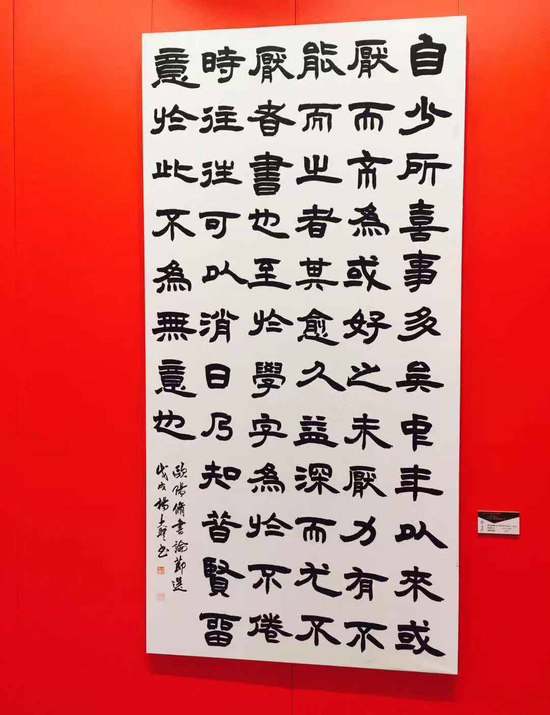 自少所喜事多矣中年以來或
厭而不為或好之未厭力有不
能而止者其愈久益深而尤不
厭者書也至於學字為於不倦
時往往可以消日乃知昔賢留
意於此不為無意也
歐陽脩書論節選
戊戌楊書